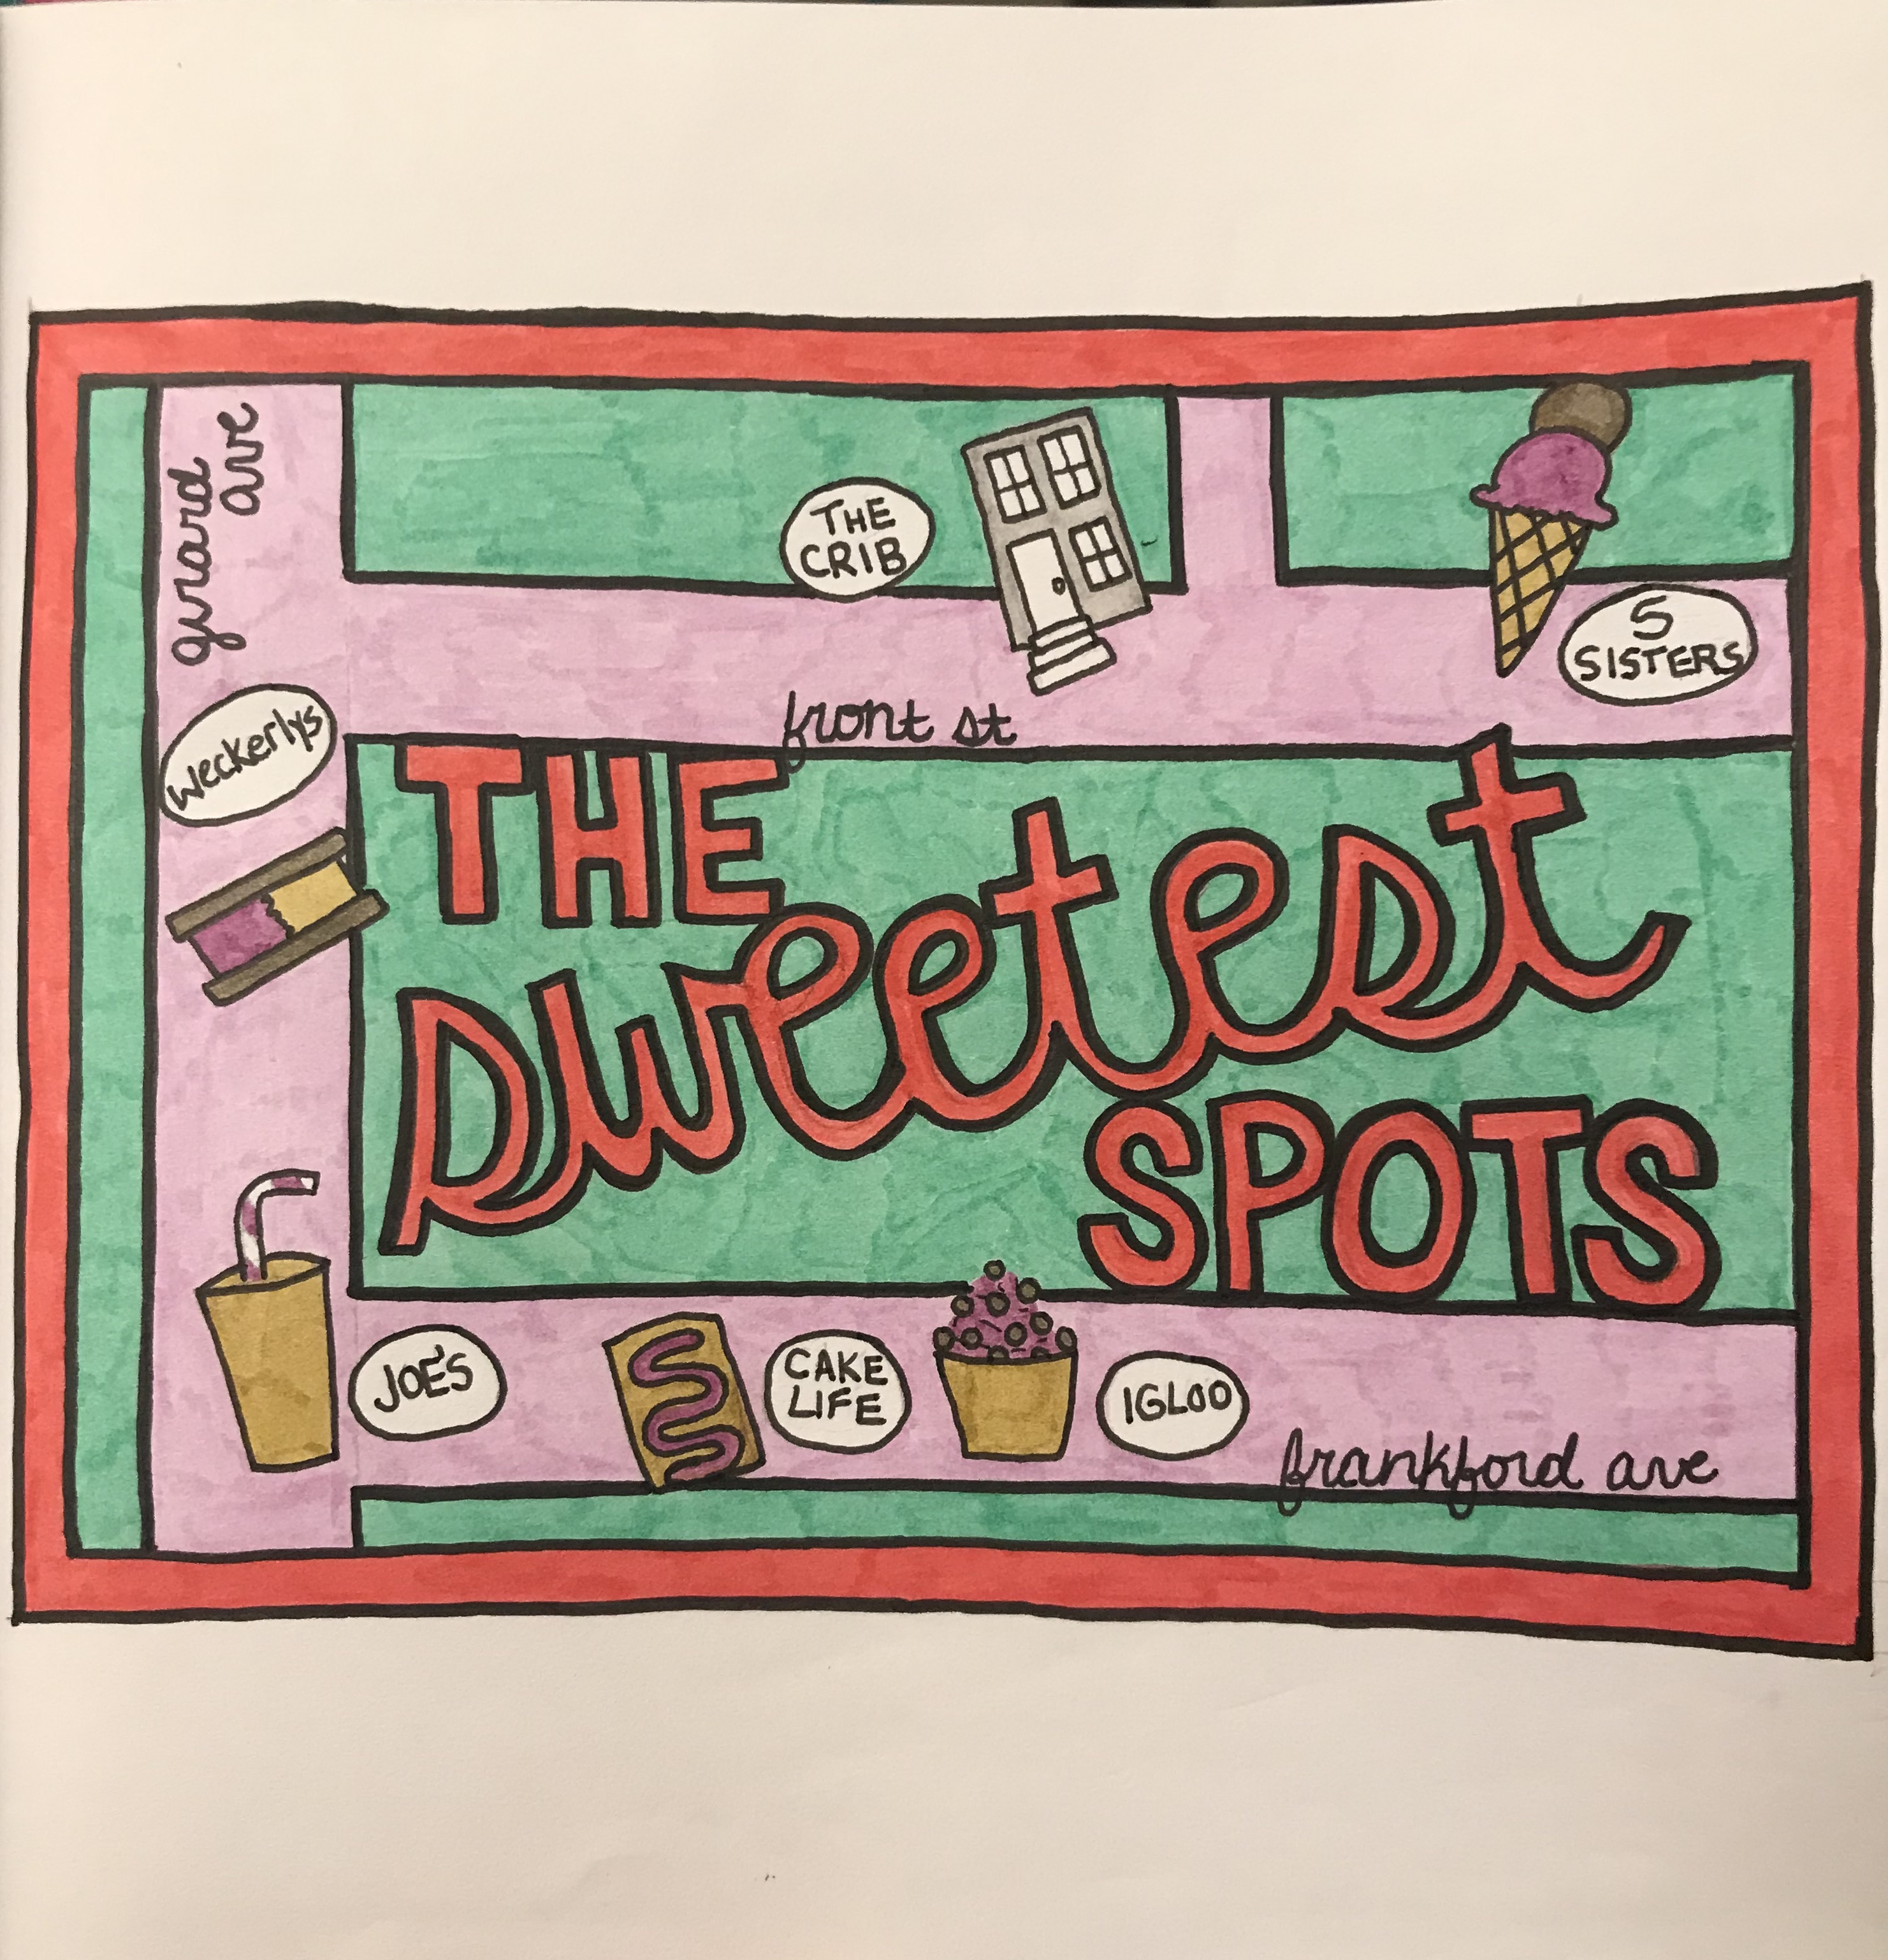 girard
ave
THE
CRIB
5
SISTERS
front st
weckerlys
THE
sweetest
SPOTS
JOE'S
CAKE
LIFE
IGLOO
frankford ave